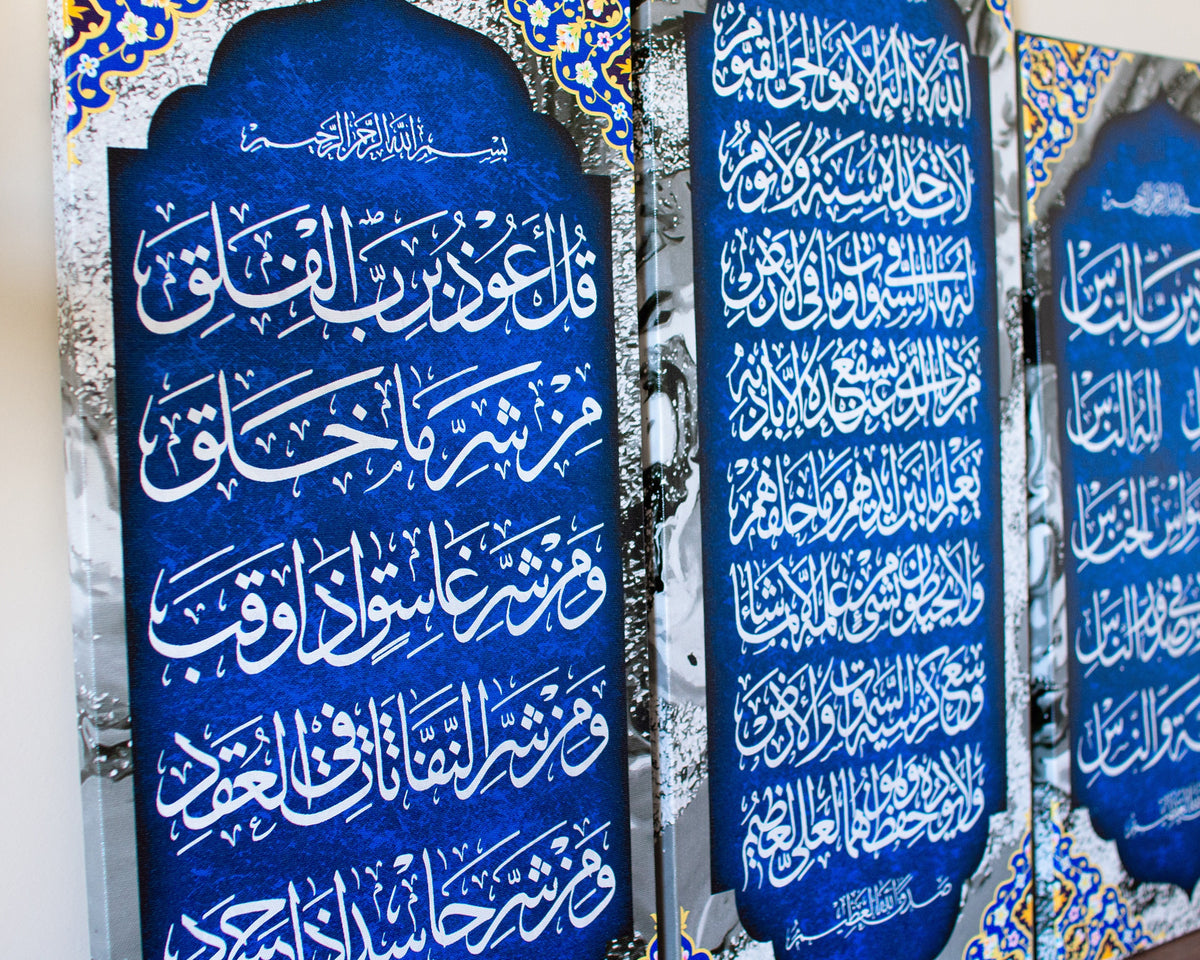 بِسْمِ اللَّهِ الرَّحْمَٰنِ الرَّحِيمِ
قُلْ أَعُوذُ بِرَبِّ الْفَلَقِ
مِنْ شَرِّ مَا خَلَقَ
وَمِنْ شَرِّ غَاسِقٍ إِذَا وَقَبَ
وَمِنْ شَرِّ النَّفَّاثَاتِ فِي الْعُقَدِ
وَمِنْ شَرِّ حَاسِدٍ إِذَا حَسَدَ
اللَّهُ لَا إِلَٰهَ إِلَّا هُوَ الْحَيُّ الْقَيُّومُ
لَا تَأْخُذُهُ سِنَةٌ وَلَا نَوْمٌ
لَهُ مَا فِي السَّمَٰوَاتِ وَمَا فِي الْأَرْضِ
مَنْ ذَا الَّذِي يَشْفَعُ عِنْدَهُ إِلَّا بِإِذْنِهِ
يَعْلَمُ مَا بَيْنَ أَيْدِيهِمْ وَمَا خَلْفَهُمْ
وَلَا يُحِيطُونَ بِشَيْءٍ مِنْ عِلْمِهِ إِلَّا بِمَا شَاءَ
وَسِعَ كُرْسِيُّهُ السَّمَٰوَاتِ وَالْأَرْضَ
وَلَا يَئُودُهُ حِفْظُهُمَا وَهُوَ الْعَلِيُّ الْعَظِيمُ
صَدَقَ اللَّهُ الْعَظِيمُ
بسم الله الرحمن الرحيم
بِرَبِّ النَّاسِ
إِلَٰهِ النَّاسِ
الْخَنَّاسِ
فِي صُدُورِ النَّاسِ
وَالنَّاسِ